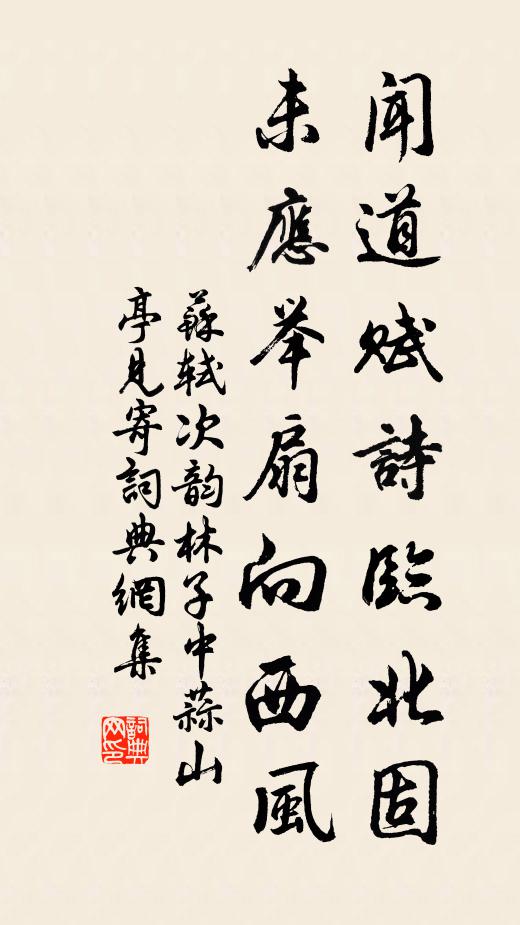 聞道賦詩臨北固
未應举扇向西風
蘇軾次韵林子中蒜山
亭見寄詞典網集
詞典
网印